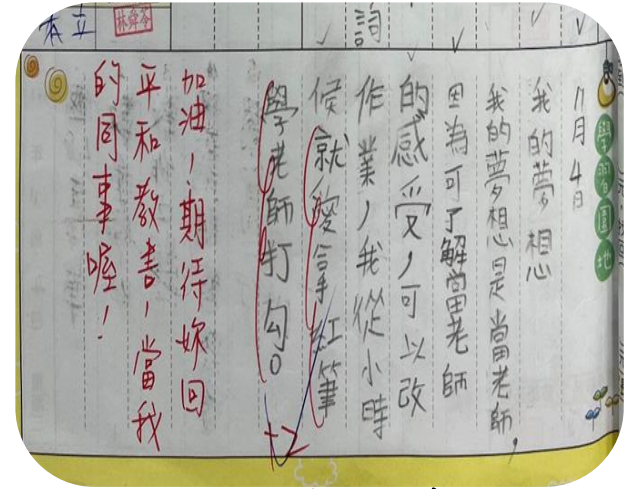 學習園地
11月4日
我的夢想
我的夢想是當老師，
因為可了解當老師
的感受，可以改
作業，我從小時
候就愛拿紅筆
學老師打勾。
+2
加油，期待妳回
平和教書，當我
的同事喔！
詞
本立
林舜苓